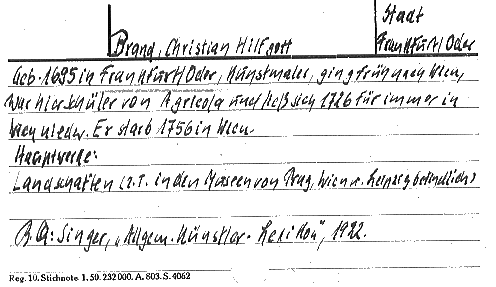 Stadt
Brand, Christian Hilfgott
Frankfurt/Oder
Geb. 1695 in Frankfurt/Oder, Kunstmaler, ging früh nach Wien,
war hier Schüler von Agricola und ließ sich 1726 für immer in
Wien nieder. Er starb 1756 in Wien.
Hauptwerke:
Landschaften (z.T. in den Museen von Prag, Wien u. Leipzig befindlich)
B.Qu: Singer, „Allgem. Künstler-Lexikon", 1922.
Reg. 10. Stichnote 1. 50. 232000. A. 603. S. 4062